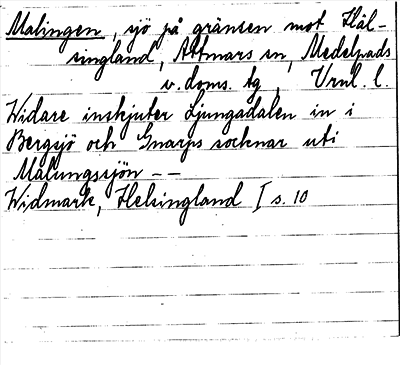 Malingen, sjö på gränsen mot Häl-
singland, Attmars sn, Medelpads
v. doms. tg, Vrnl. l.
Widare inskjuter Ljungadalen in i
Bergsjö och Gnarps socknar uti
Malungssjön --
Widmark, Helsingland I s. 10